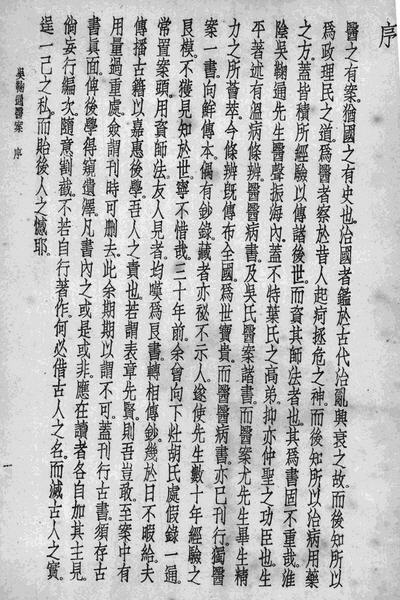 序
醫之有案。猶國之有史也。治國者鑑於古代治亂興衰之故。而後知所以
為政理民之道。為醫者察於昔人起疴拯危之神。而後知所以治病用藥
之方。蓋皆積所經驗以傳諸後世。而資其師法者也。其為書固不重哉。淮
陰吳鞠通先生醫聲振海內。蓋不特葉氏之高弟。抑亦仲聖之功臣也。生
平著述有溫病條辨。醫醫病書。及吳氏醫案諸書。而醫案尤先生畢生精
力之所薈萃。今條辨旣傳布全國。為世寶貴。而醫醫病書。亦已刊行。獨醫
案一書。向鮮傳本。偶有鈔錄。藏者亦秘不示人。遂使先生數十年經驗之
良模。不獲見知於世。寧不惜哉。三十年前。余曾向下灶胡氏處假錄一通。
常置案頭。用資師法。友人見者。均嘆為良書。轉相傳鈔。幾於日不暇給。夫
傳播古籍。以嘉惠後學。吾人之責也。若謂表章先賢。則吾豈敢。至案中有
用量過重處。僉謂刊時可刪去。此余期期以謂不可。蓋刊行古書。須存古
書眞面。俾後學得窺遺澤。凡書內之或是或非。應在讀者各自加其主見。
倘妄行編次。隨意割裁。不若自行著作。何必借古人之名。而滅古人之實。
逞一己之私。而貽後人之憾耶。
吳鞠通醫案 序
一